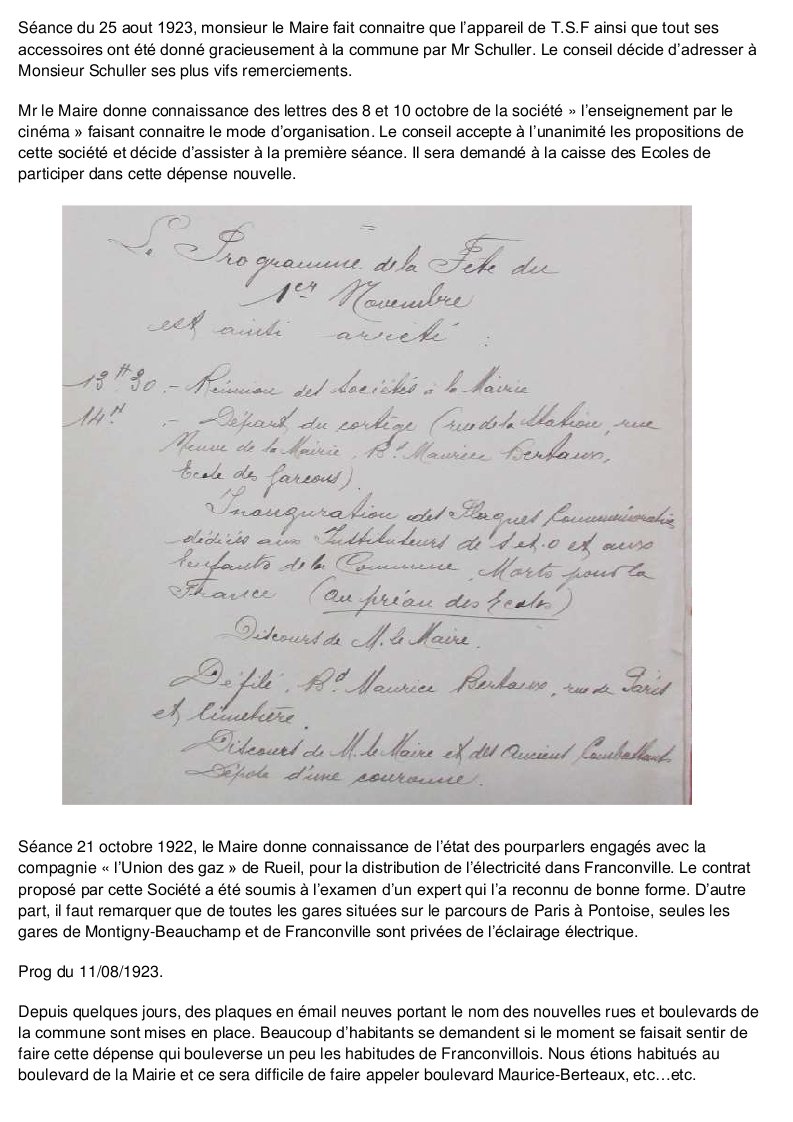 Séance du 25 aout 1923, monsieur le Maire fait connaitre que l’appareil de T.S.F ainsi que tout ses
accessoires ont été donné gracieusement à la commune par Mr Schuller. Le conseil décide d’adresser à
Monsieur Schuller ses plus vifs remerciements.
Mr le Maire donne connaissance des lettres des 8 et 10 octobre de la société » l’enseignement par le
cinéma » faisant connaitre le mode d’organisation. Le conseil accepte à l’unanimité les propositions de
cette société et décide d’assister à la première séance. Il sera demandé à la caisse des Ecoles de
participer dans cette dépense nouvelle.
Le Programme de la Fête du
1er Novembre
est ainsi arrêté :
13H30 - Réunion des Sociétés à la Mairie
14H - Départ du cortège (rue de la Station, rue
Neuve de la Mairie, Bd Maurice Berteaux,
Ecole des Garçons)
Inauguration des Plaques Commémoratives
dédiées aux Instituteurs de S et O et aux
Enfants de la Commune Morts pour la
France (au préau des Ecoles)
Discours de M. le Maire.
Défilé, Bd Maurice Berteaux, rue de Paris
et Cimetière.
Discours de M. le Maire et des Anciens Combattants
Dépôt d'une couronne.
Séance 21 octobre 1922, le Maire donne connaissance de l’état des pourparlers engagés avec la
compagnie « l’Union des gaz » de Rueil, pour la distribution de l’électricité dans Franconville. Le contrat
proposé par cette Société a été soumis à l’examen d’un expert qui l’a reconnu de bonne forme. D’autre
part, il faut remarquer que de toutes les gares situées sur le parcours de Paris à Pontoise, seules les
gares de Montigny-Beauchamp et de Franconville sont privées de l’éclairage électrique.
Prog du 11/08/1923.
Depuis quelques jours, des plaques en émail neuves portant le nom des nouvelles rues et boulevards de
la commune sont mises en place. Beaucoup d’habitants se demandent si le moment se faisait sentir de
faire cette dépense qui bouleverse un peu les habitudes de Franconvillois. Nous étions habitués au
boulevard de la Mairie et ce sera difficile de faire appeler boulevard Maurice-Berteaux, etc…etc.